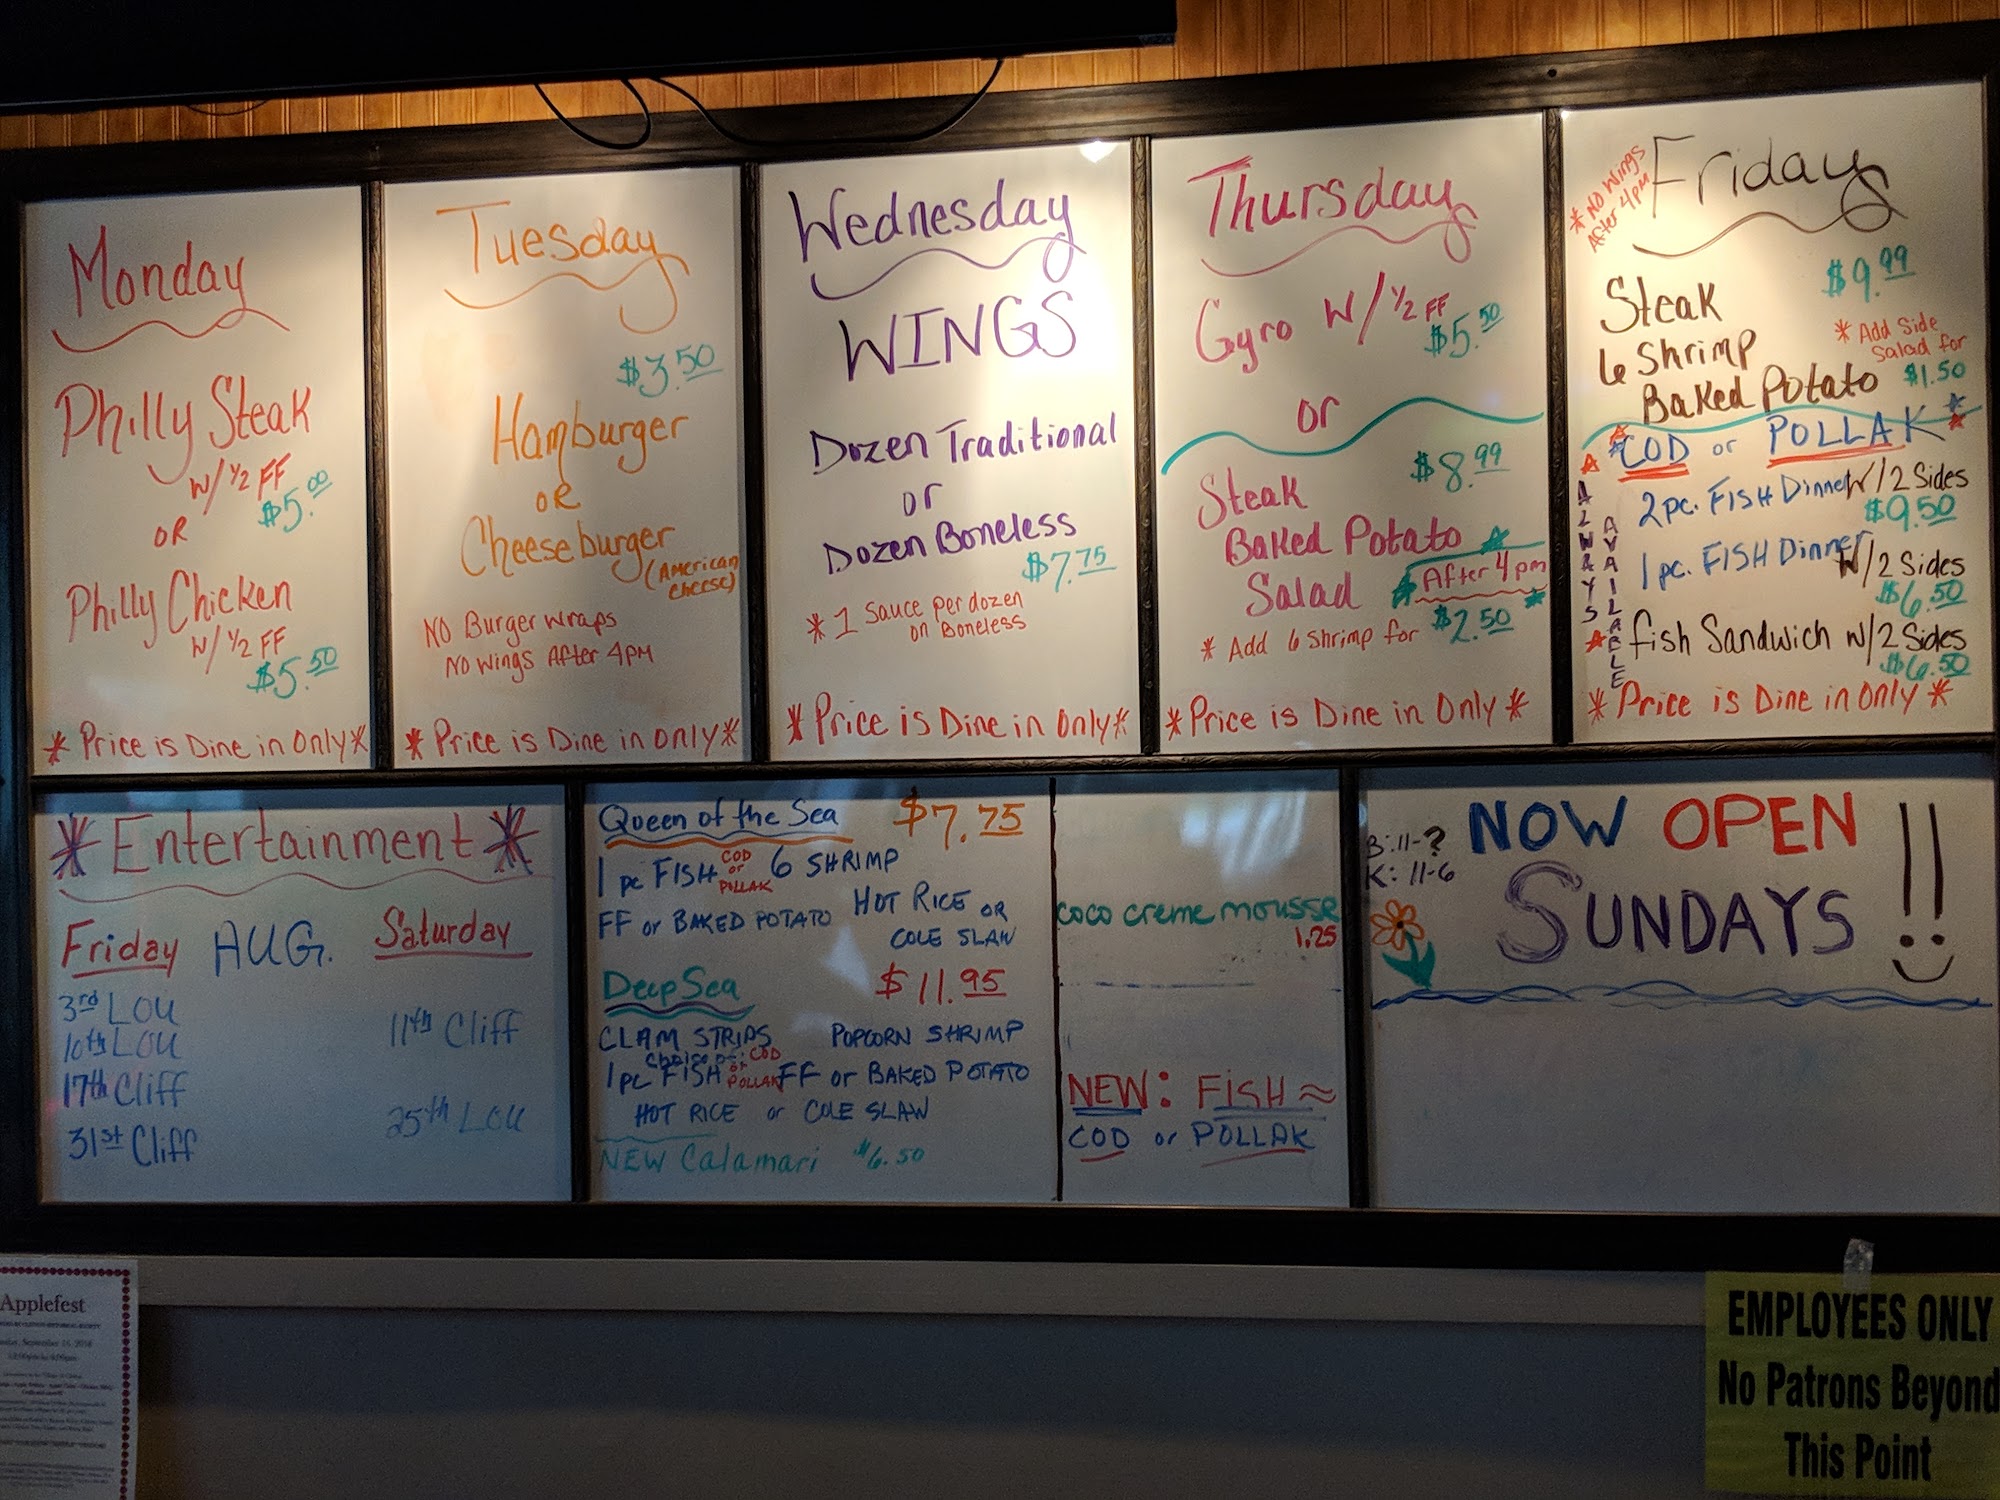 Monday
Philly Steak
w/ ½ FF
$5.00
OR
Philly Chicken
w/ ½ FF
$5.50
* Price is Dine in Only *
Tuesday
$3.50
Hamburger
OR
Cheeseburger
(American
Cheese)
No Burger Wraps
No Wings After 4PM
* Price is Dine in Only *
Wednesday
WINGS
Dozen Traditional
or
Dozen Boneless
$7.75
* 1 Sauce per dozen
on Boneless
* Price is Dine in Only *
Thursday
Gyro w/ ½ FF
$5.50
or
$8.99
Steak
Baked Potato
Salad
After 4 pm
* Add 6 Shrimp for $2.50
* Price is Dine in Only *
* No Wings
After 4pm
Friday
$9.99
Steak
6 Shrimp
Baked Potato
* Add Side
Salad for
$1.50
COD or POLLAK
ALWAYS
AVAILABLE
2 pc. FISH Dinner w/ 2 Sides
$9.50
1 pc. FISH Dinner w/ 2 Sides
$6.50
fish Sandwich w/ 2 Sides
$6.50
* Price is Dine in Only *
* Entertainment *
Friday AUG. Saturday
3rd Lou
10th Lou
11th Cliff
17th Cliff
25th Lou
31st Cliff
Queen of the Sea $7.75
1 pc FISH COD or POLLAK 6 SHRIMP
FF or BAKED POTATO HOT RICE OR
COLE SLAW
Deep Sea $11.95
CLAM STRIPS POPCORN SHRIMP
Choice of: COD or POLLAK
1 pc FISH FF or BAKED POTATO
HOT RICE or COLE SLAW
NEW Calamari $6.50
coco creme mousse
1.25
NEW: FISH ≈
COD or POLLAK
B: 11-?
K: 11-6
NOW OPEN
SUNDAYS !!
Applefest
EMPLOYEES ONLY
No Patrons Beyond
This Point